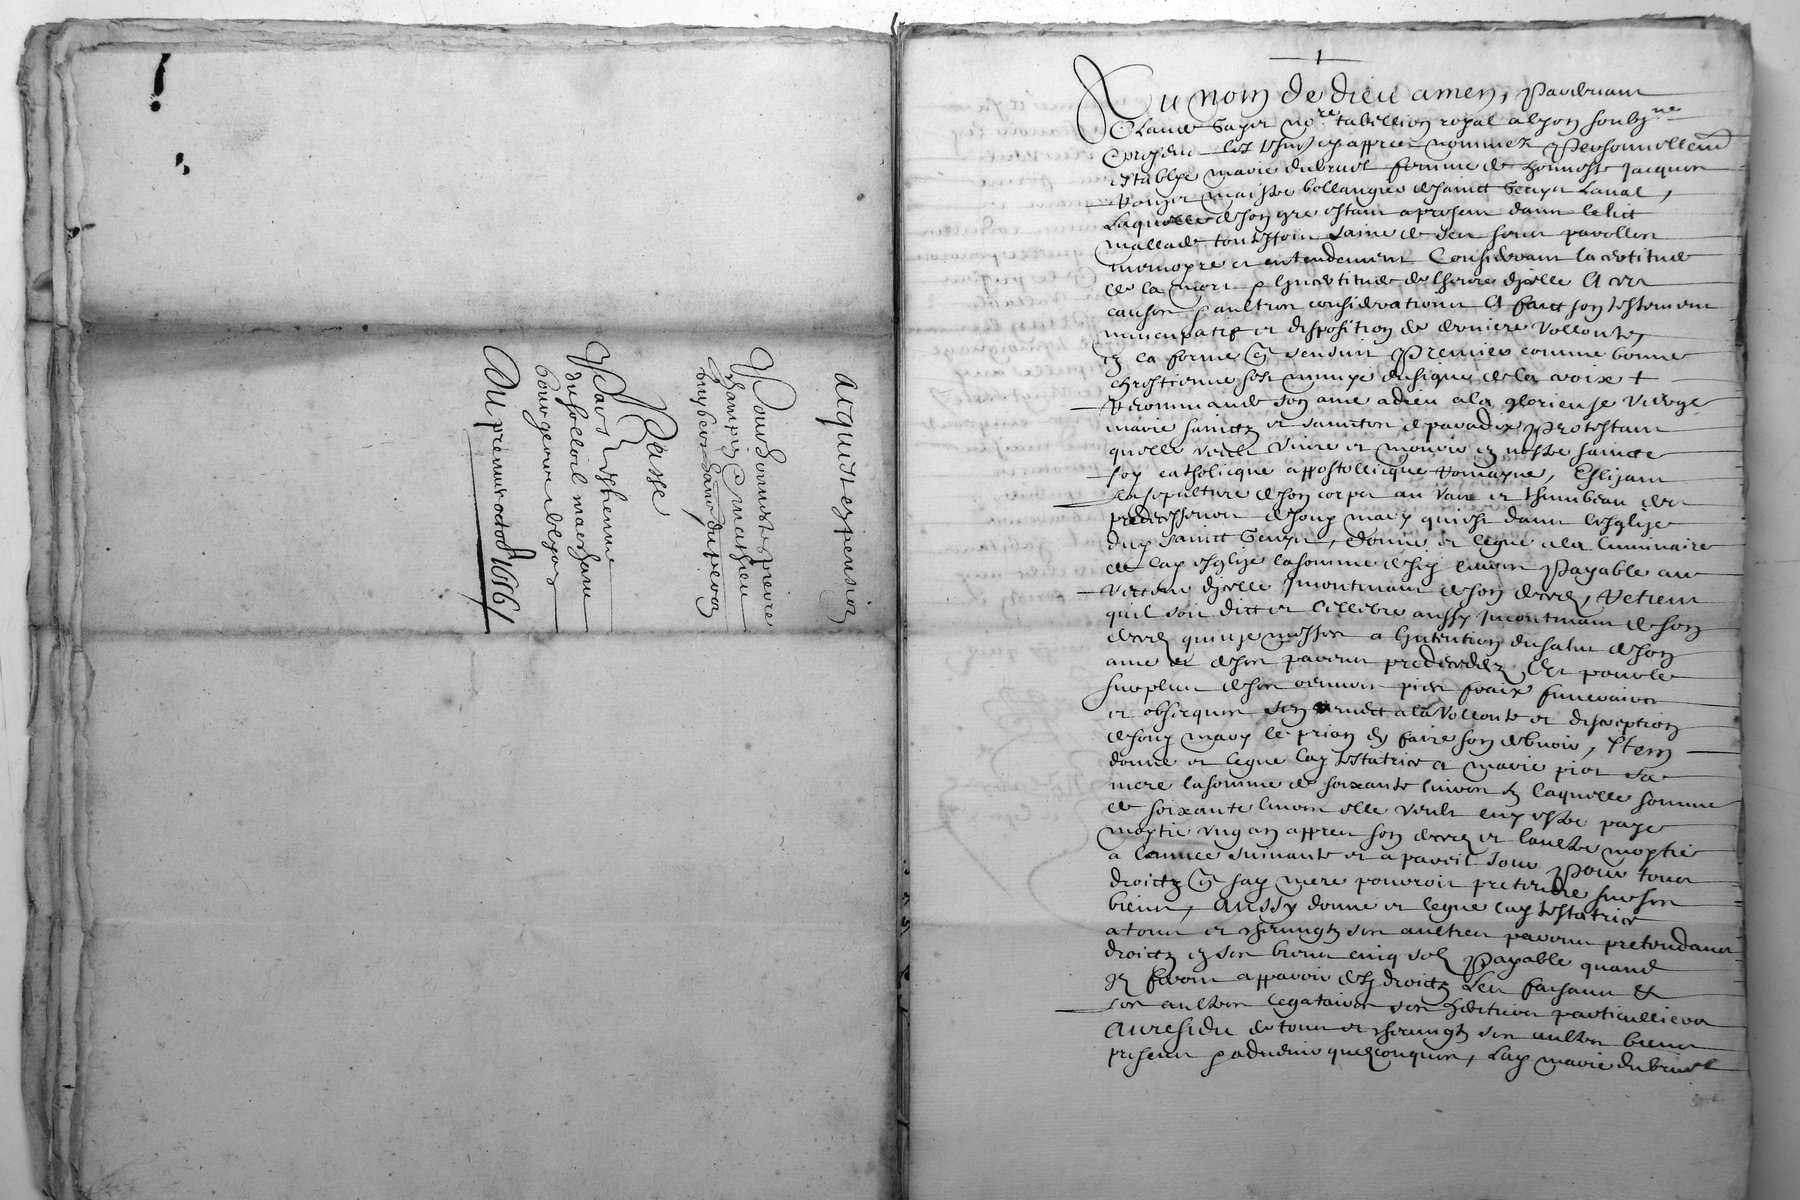 acquit et pension
Pour honneste Pierre
Champis & Mathieu
Passe
Par Estienne
du Solleil marchant
bourgeois de Lyon
Du premier octob 1661
Au nom de dieu amen, Pardevant
Claude no.re tabellion royal a Lyon soubz.ne
& presens les tesmoins apprès nommez Personnellemt
establye marie dubruel femme de honneste Jacques
maistre bollangier de sainct Genys Laval,
Laquelle de son gre estant a present dans le lict
mallade toutesfois saine de ses sens parolles
memoyre et entendement Considerant la certitude
de la mort & lincertitude de lheure dicelle A ces
causes & aultres considerations A faict son testement
nuncupatif et disposition de derniere vollonte,
en la forme que sensuit Premier comme bonne
chrestienne sest munye du signe de la croix +
Recommande son ame a dieu a la glorieuse vierge
marie sainctz et sainctes de paradix Protestant
quelle veult vivre et mourir en nostre saincte
foy catholicque appostollicque Romayne, Eslizant
la sepulture de son corps au vas et thumbeau des
predecesseurs de son mary quiest dans lesglize
dud sainct Genys, donne et legue a la luminaire
de lad esglize la somme de six livres Payable aux
dicelle Incontinant son deces, Veteur
quil soit dict et cellebre aussy Incontinant de son
deces quinze messes a lintention du salut de son
ame et de ses parens predecedez, Et pour le
surplus de ses oeuvres pies fraix funeraires
et obseques sen remect a la vollonte et discreption
de son mary le prian dy faire son debvoir, Item
donne et legue lad testatrice a marie piot sa
mere la somme de soixante livres laquelle somme
de soixante livres elle veult luy estre paye
moytie ung an appres son deces et laultre moytie
a lannee suivante et a pareil jour Pour tous
droictz que sad mere pouvroit pretendre sur ses
biens, Aussy donne et legue lad testatrice
a tous et chascungz ses aultres parens pretendans
droictz en ses biens cinq solz Payable quand
Ilz feront apparoir desd droictz Les faisant &
ses aultres legataires ses heritiers particulliers
Au residu de tous et chascungz ses aultres biens
presens & advenir quelconques, Lad marie dubruel